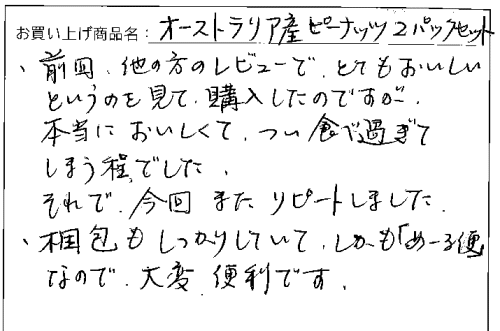 お買い上げ商品名: オーストラリア産ピーナッツ2パックセット
、前回、他の方のレビューで、とてもおいしい
というのを見て、購入したのですが、
本当においしくて、つい食べ過ぎて
しまう程でした。
それで、今回またリピートしました。
、梱包もしっかりしていて、しかも「めーる便
なので、大変、便利です。